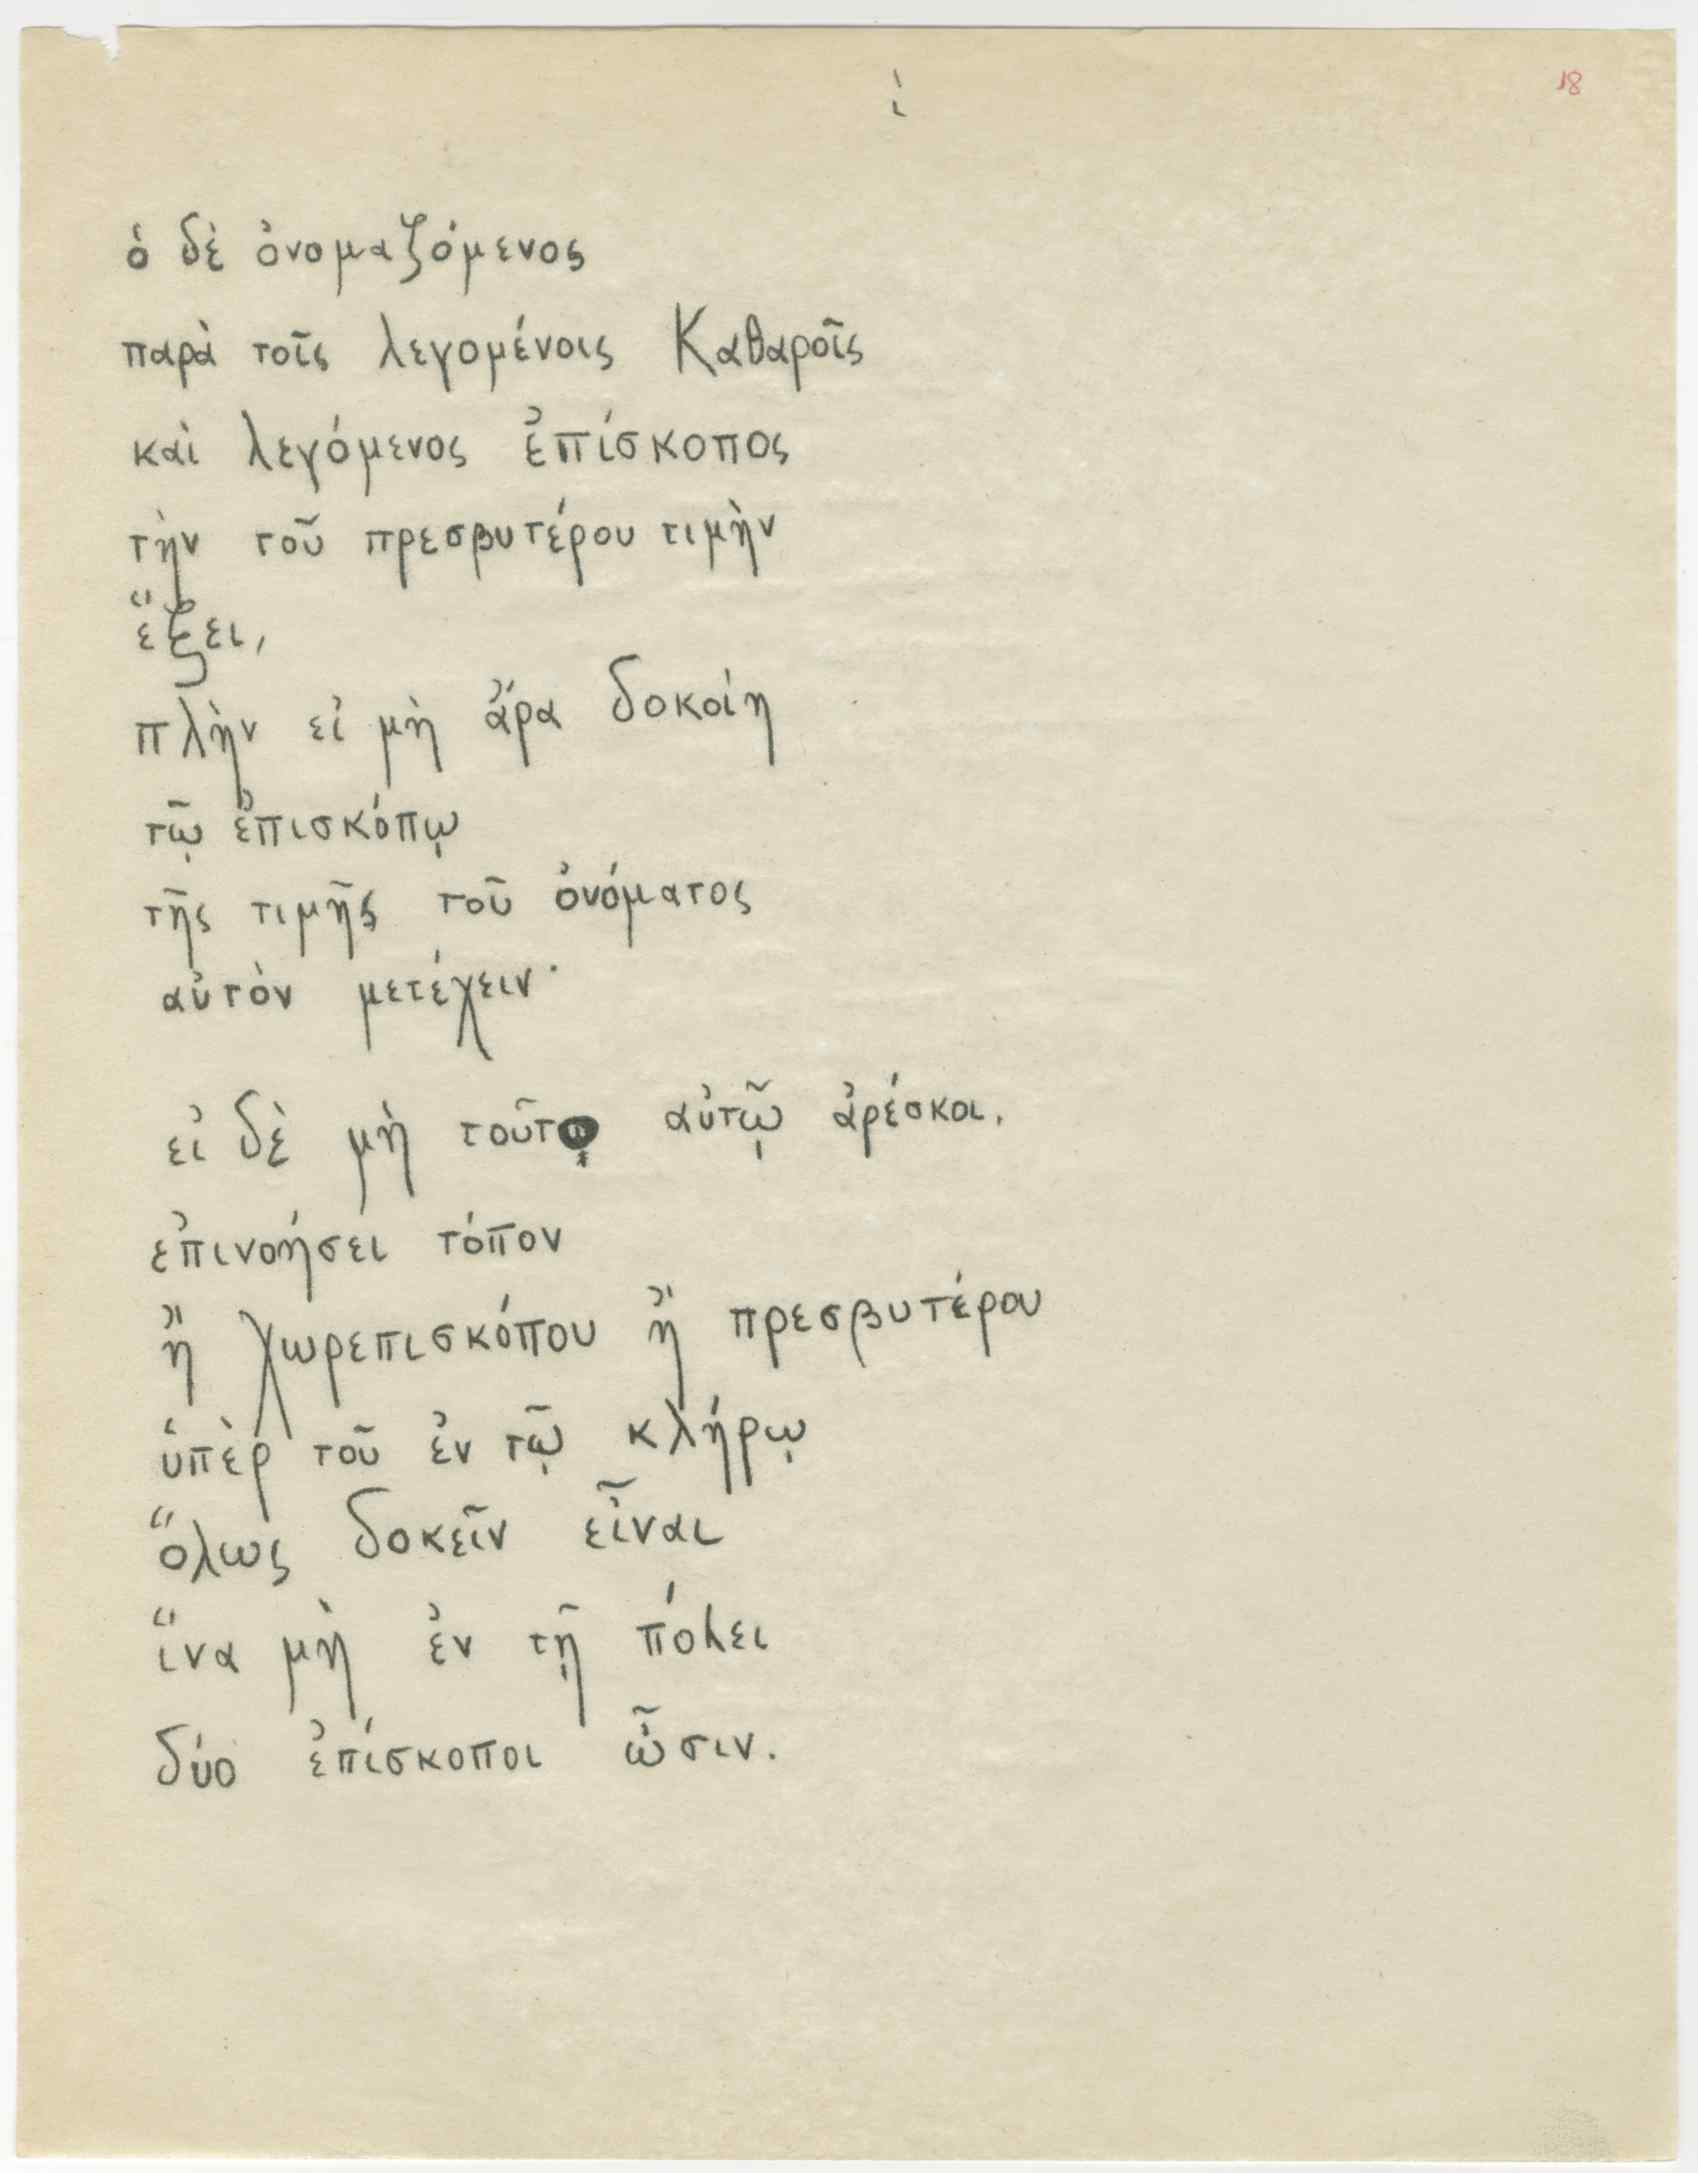 ί
18
ὁ δὲ ὀνομαζόμενος
παρὰ τοῖς λεγομένοις Καθαροῖς
καὶ λεγόμενος ἐπίσκοπος
τὴν τοῦ πρεσβυτέρου τιμὴν
ἕξει,
πλὴν εἰ μὴ ἄρα δοκοίη
τῷ ἐπισκόπῳ
τῆς τιμῆς τοῦ ὀνόματος
αὐτὸν μετέχειν·
εἰ δὲ μὴ τοῦτο αὐτῷ ἀρέσκοι,
ἐπινοήσει τόπον
ἢ χωρεπισκόπου ἢ πρεσβυτέρου
ὑπὲρ τοῦ ἐν τῷ κλήρῳ
ὅλως δοκεῖν εἶναι
ἵνα μὴ ἐν τῇ πόλει
δύο ἐπίσκοποι ὦσιν.